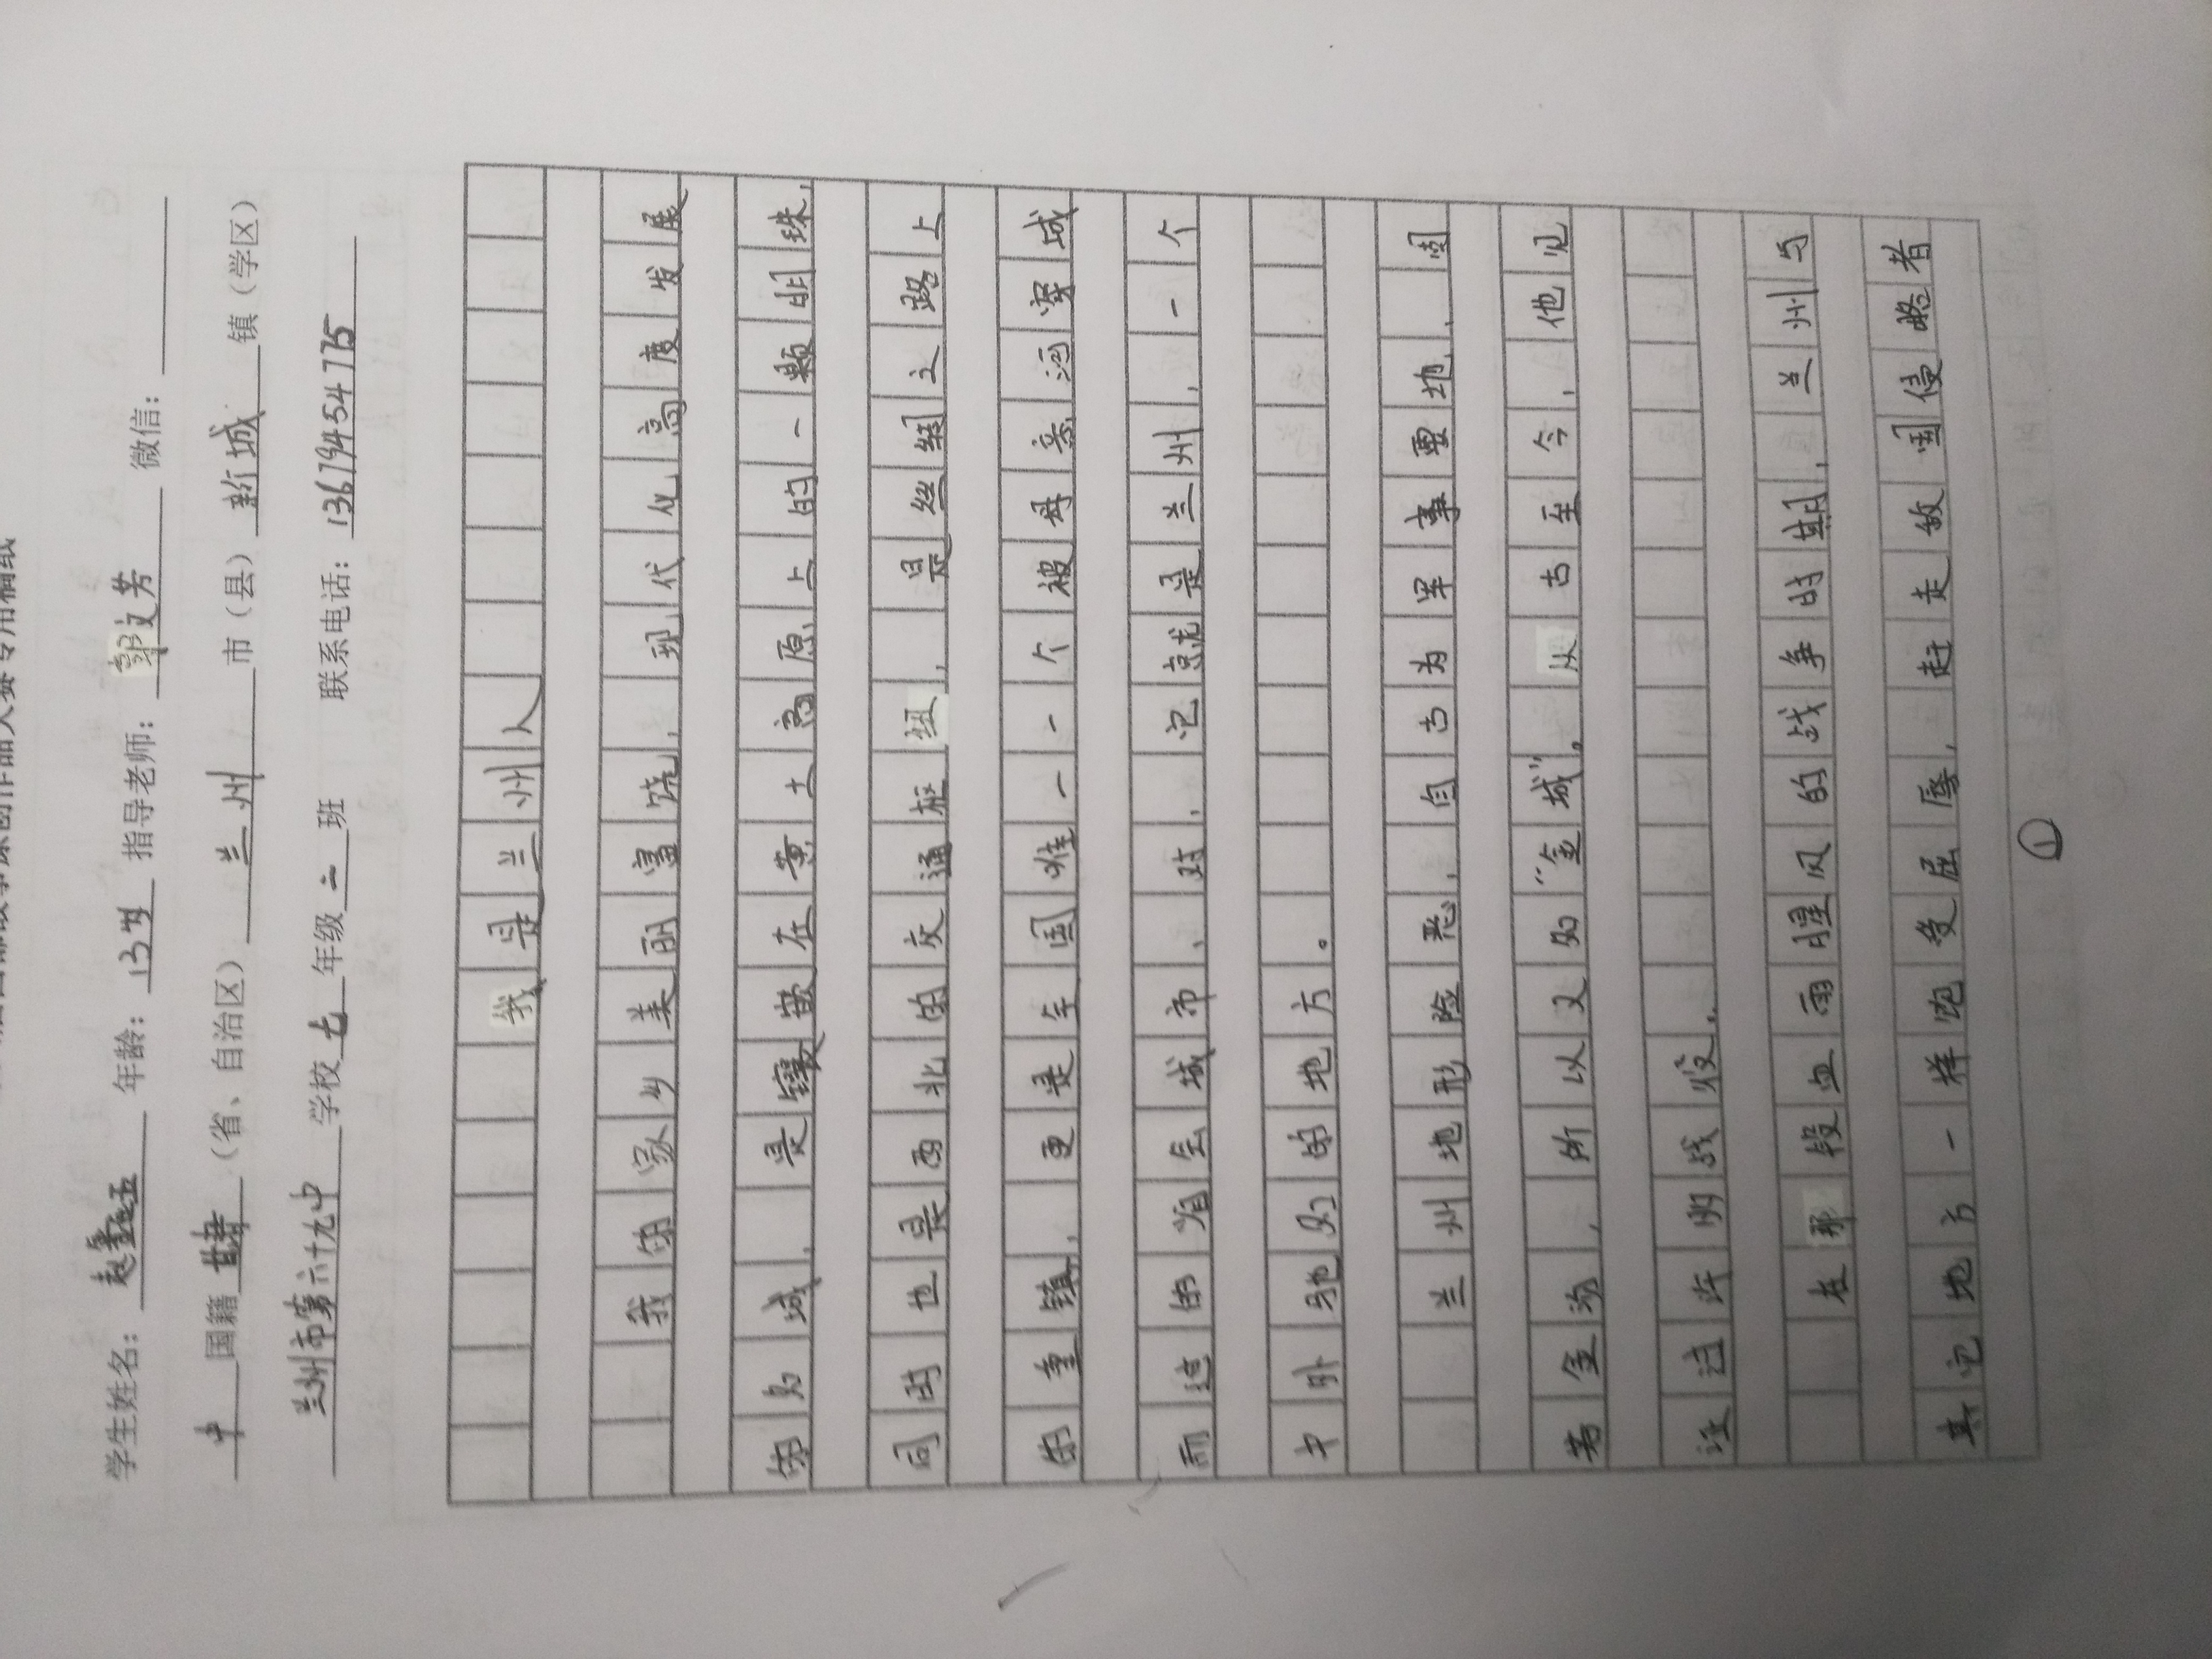 作品大赛专用稿纸
学生姓名：赵鑫 年龄：13岁 指导老师：郭文芳 微信：
中国籍 甘肃（省、自治区）兰州 市（县）新城 镇（学区）
兰州市第六十九中 学校 七 年级 二 班 联系电话：13679454775
我是兰州人
我的家乡美丽富饶，现代化高度发展
的名城，是镶嵌在黄土高原上的一颗明珠，
同时也是西北的交通枢纽，是丝绸之路上
的重镇，更是全国唯一一个被母亲河穿城
而过的省会城市、对，它就是兰州，一个
中外驰名的地方。
兰州地形险恶，自古为军事要地，固
若金汤，所以又名“金城”。从古至今，他见
证过许明战役。
在那段血雨腥风的战争时期，兰州与
其它地方一样饱受屈辱，赶走敌国侵略者
①